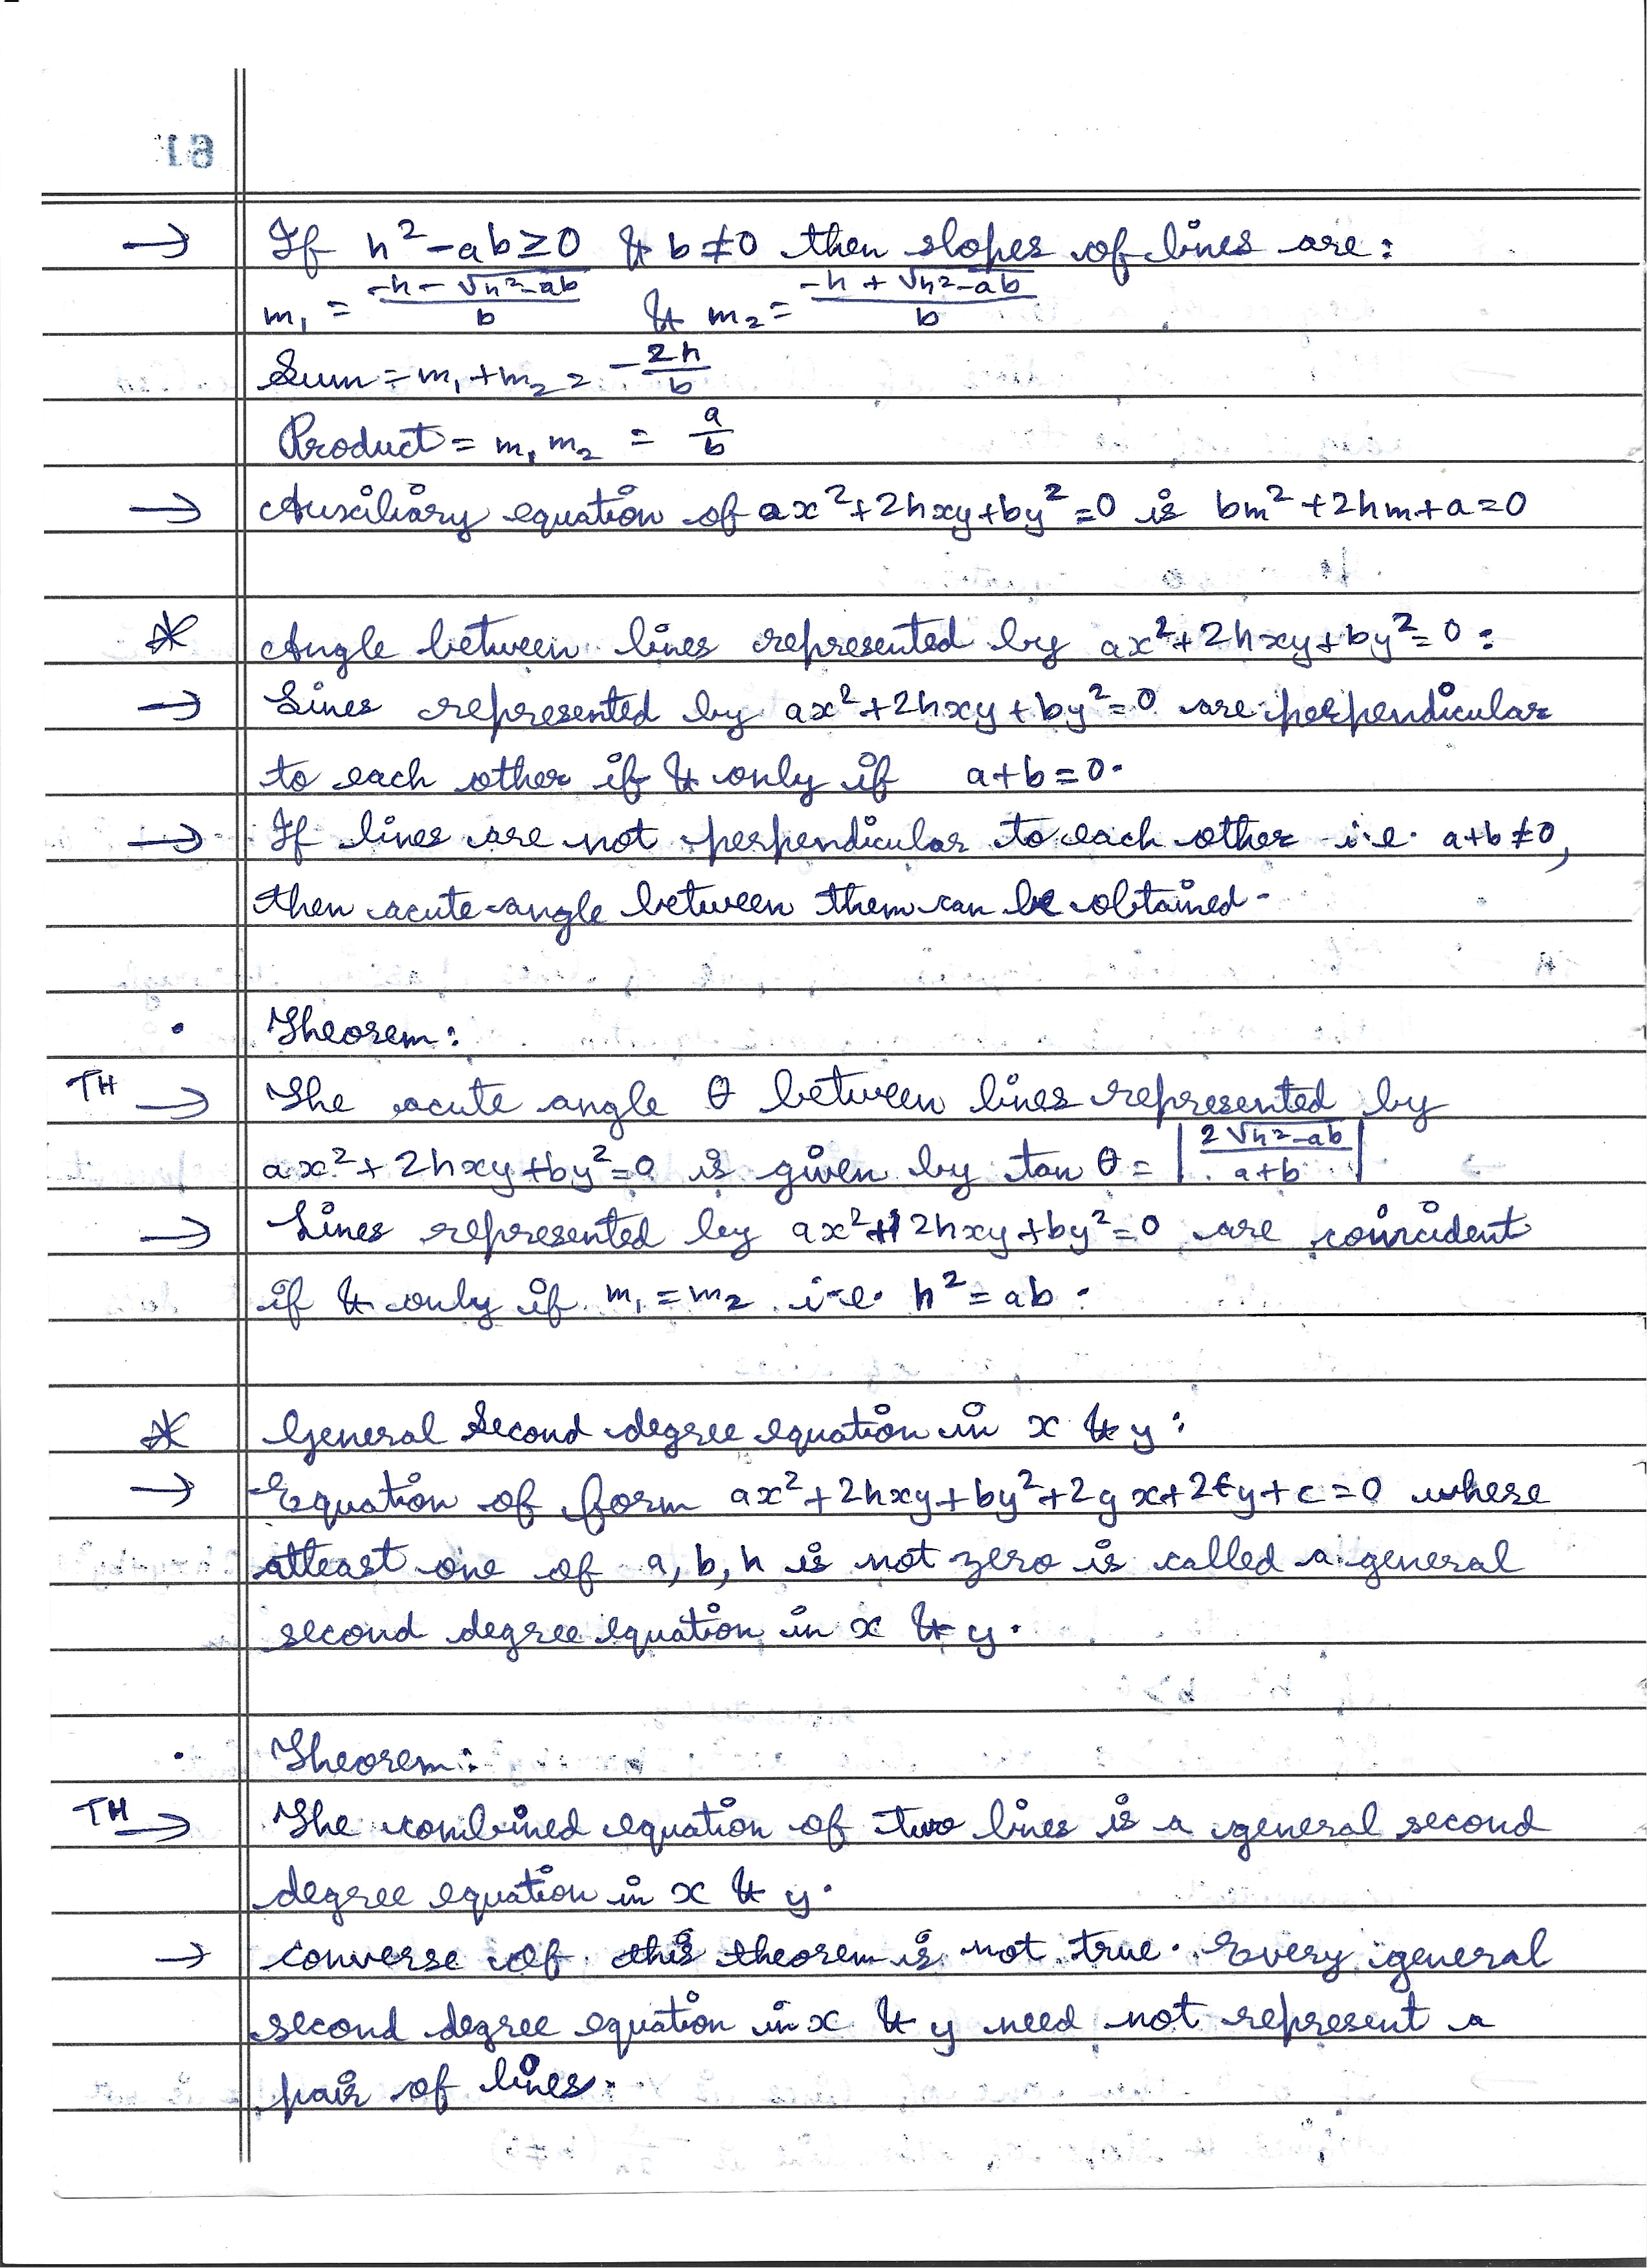 61
→ If h² - ab ≥ 0 & b ≠ 0 then slopes of lines are:
m₁ = (-h - √(h²-ab))/b & m₂ = (-h + √(h²-ab))/b
Sum = m₁ + m₂ = -2h/b
Product = m₁ m₂ = a/b
→ Auxiliary equation of ax² + 2hxy + by² = 0 is bm² + 2hm + a = 0
* Angle between lines represented by ax² + 2hxy + by² = 0 :
→ Lines represented by ax² + 2hxy + by² = 0 are perpendicular
to each other if & only if a + b = 0.
→ If lines are not perpendicular to each other i.e. a + b ≠ 0,
then acute angle between them can be obtained.
• Theorem:
TH → The acute angle θ between lines represented by
ax² + 2hxy + by² = 0 is given by tan θ = |2√(h²-ab)/(a+b)|
→ Lines represented by ax² + 2hxy + by² = 0 are coincident
if & only if m₁ = m₂ i.e. h² = ab.
* General Second degree equation in x & y:
→ Equation of form ax² + 2hxy + by² + 2gx + 2fy + c = 0 where
atleast one of a, b, h is not zero is called a general
second degree equation in x & y.
• Theorem:
TH → The combined equation of two lines is a general second
degree equation in x & y.
→ converse of this theorem is not true. Every general
second degree equation in x & y need not represent a
pair of lines.